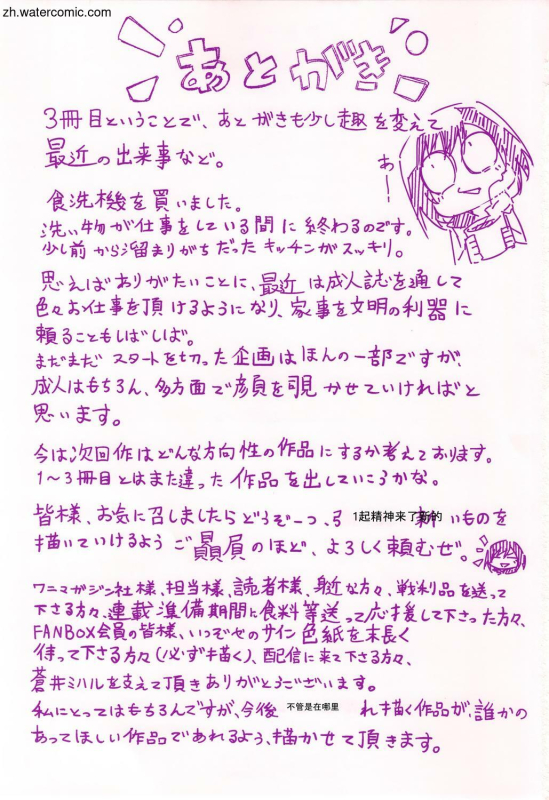 zh.watercomic.com
あとがき
3冊目ということで、あとがきも少し趣を変えて
最近の出来事など。
あー
食洗機を買いました。
洗い物が仕事をしている間に終わるのです。
少し前から溜まりがちだったキッチンがスッキリ。
思えばありがたいことに、最近は成人誌を通して
色々お仕事を頂けるようになり、家事を文明の利器に
頼ることもしばしば。
まだまだスタートを切った企画はほんの一部ですが、
成人はもちろん、多方面で顔を覗かせていければと
思います。
今は次回作はどんな方向性の作品にするか考えております。
1〜3冊目とはまた違った作品を出していこうかな。
皆様、お気に召しましたらどうぞ一つ、
1起精神来了新的
いものを
描いていけるようご贔屓のほど、よろしく頼むぜ。
ワニマガジン社様、担当様、読者様、身近な方々、戦利品を送って
下さる方々、連載準備期間に食料等送って応援して下さった方々、
FANBOX会員の皆様、いつぞやのサイン色紙を末長く
待って下さる方々(必ず描く)、配信に来て下さる方々、
蒼井ミハルを支えて頂きありがとうございます。
私にとってはもちろんですが、今後
不管是在哪里
れ描く作品が、誰かの
あってほしい作品であれるよう、描かせて頂きます。